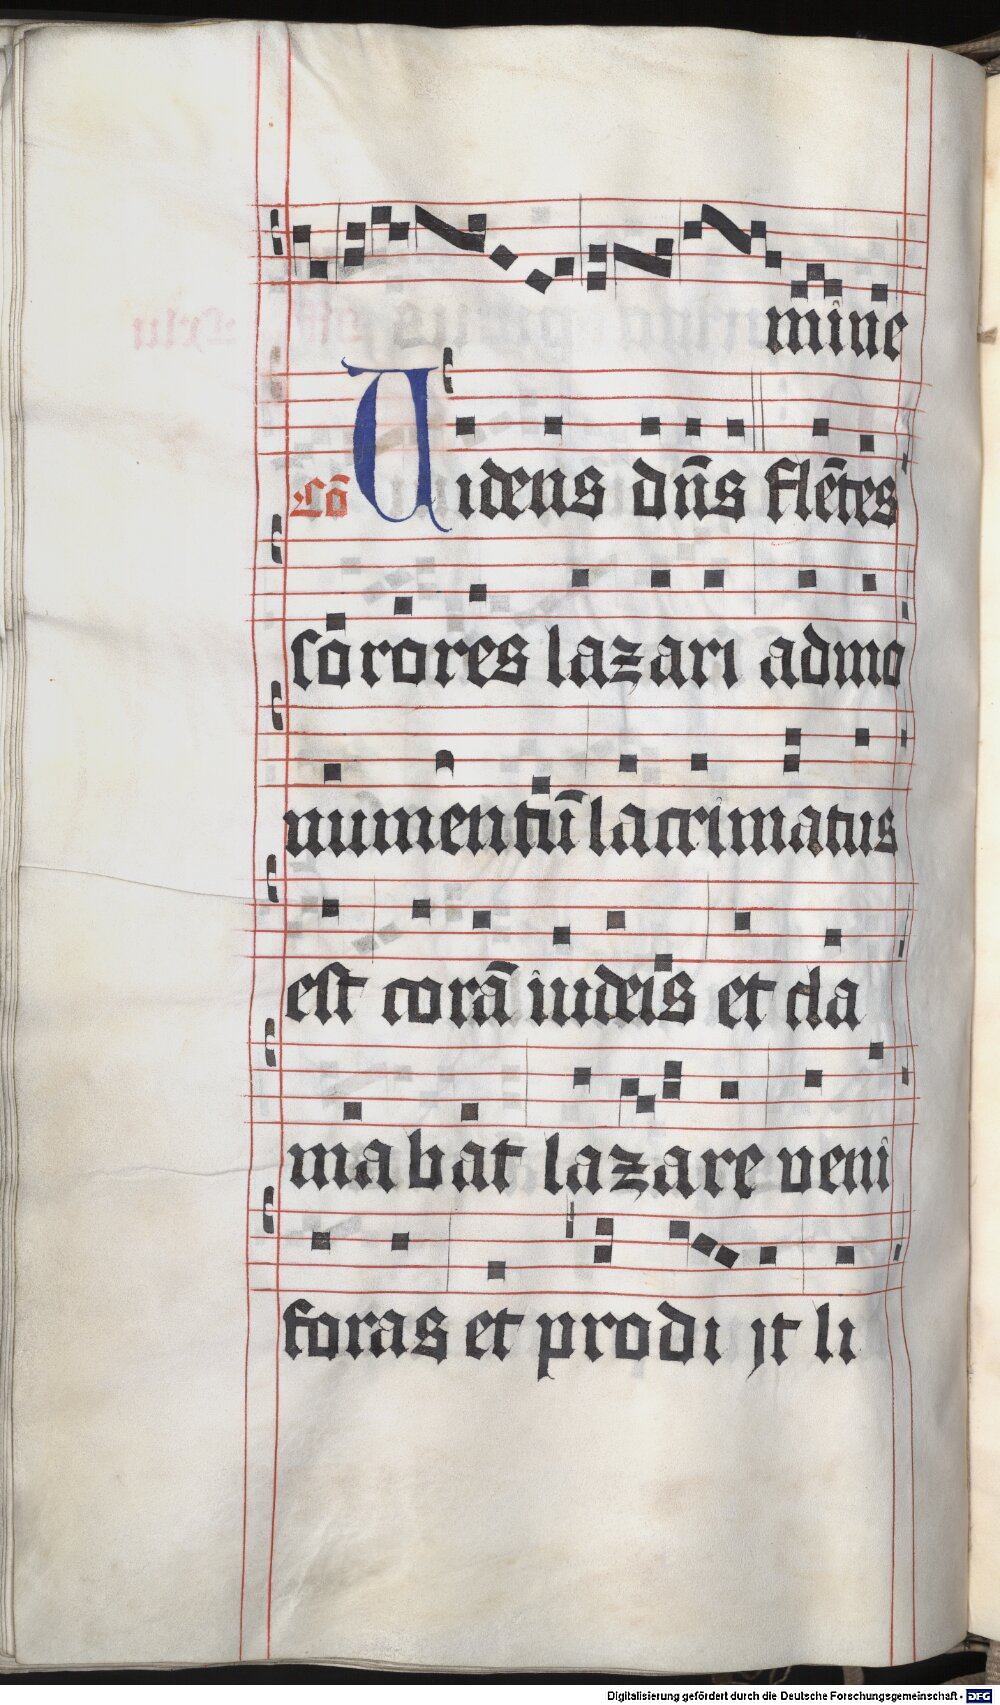 mine
Cō Uidens dn̄s flētes
sorores lazari admo
numentū lacrimatus
est corā iudeis et cla
mabat lazare veni
foras et prodi jt li
Digitalisierung gefördert durch die Deutsche Forschungsgemeinschaft - DFG